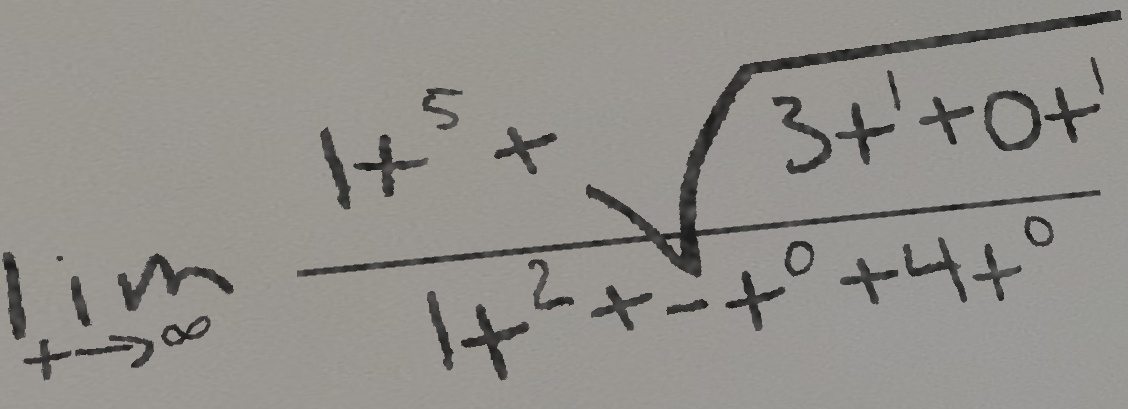 \lim_{t \to \infty} \frac{1t^5 + \sqrt{3t^1 + 0t^1}}{1t^2 + -t^0 + 4t^0}